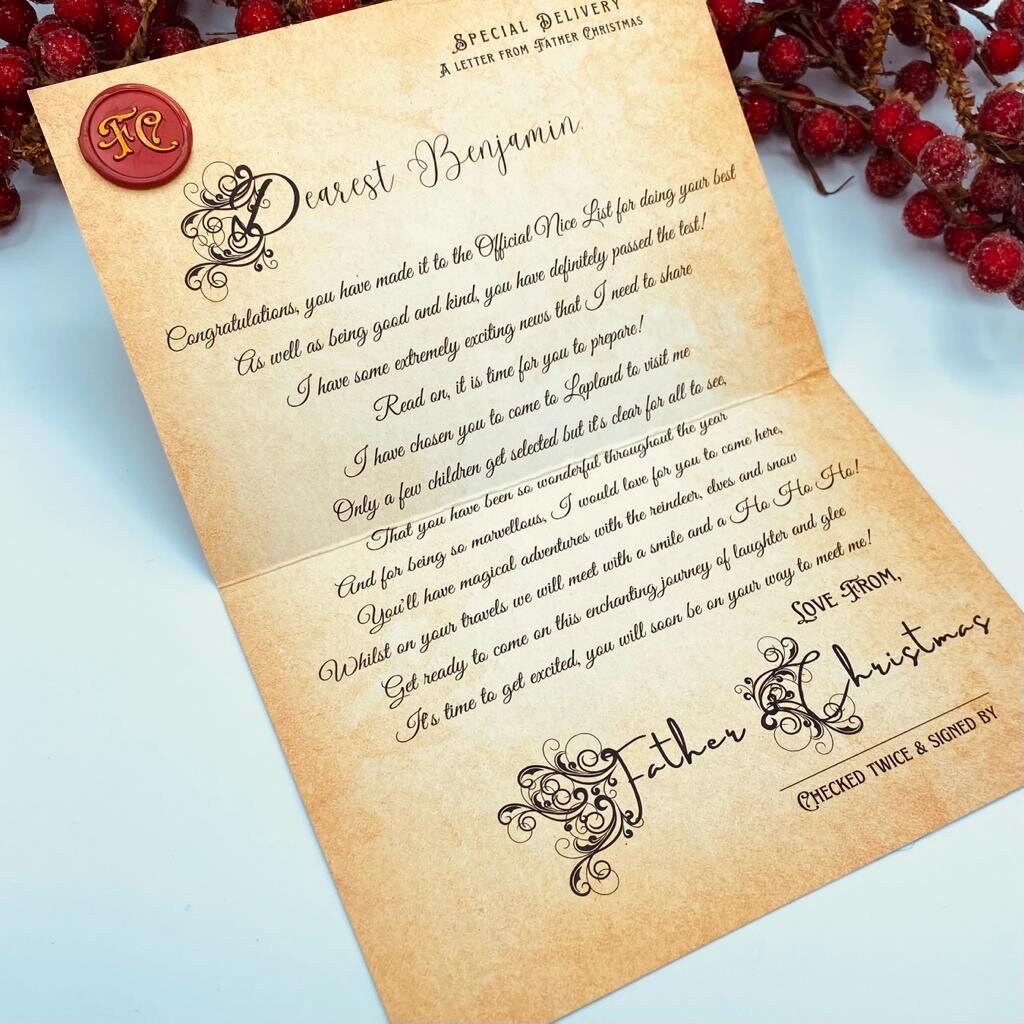 Special Delivery
A letter from Father Christmas
FC
Dearest Benjamin,
Congratulations, you have made it to the Official Nice List for doing your best
As well as being good and kind, you have definitely passed the test!
I have some extremely exciting news that I need to share
Read on, it is time for you to prepare!
I have chosen you to come to Lapland to visit me
Only a few children get selected but it's clear for all to see,
That you have been so wonderful throughout the year
And for being so marvellous, I would love for you to come here,
You'll have magical adventures with the reindeer, elves and snow
Whilst on your travels we will meet with a smile and a Ho Ho Ho!
Get ready to come on this enchanting journey of laughter and glee
It's time to get excited, you will soon be on your way to meet me!
Love From,
Father Christmas
Checked twice & signed by